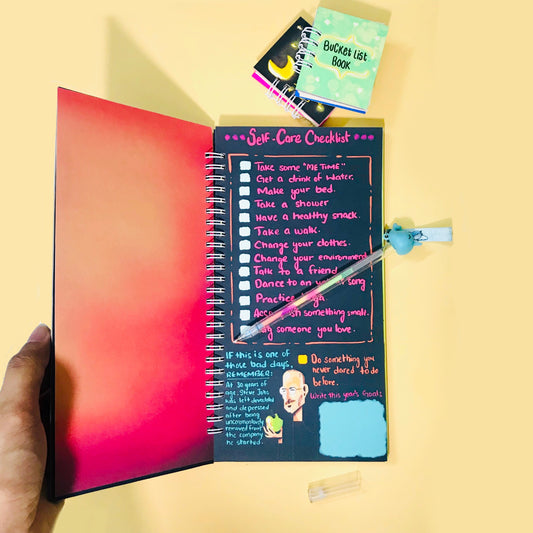 BUCKET LIST
BOOK
Self-Care Checklist
Take some "ME TIME"
Get a drink of water.
Make your bed.
Take a shower
Have a healthy snack.
Take a walk.
Change your clothes.
Change your environment
Talk to a friend
Dance to an song
Practice
something small.
someone you love.
IF this is one of
those bad days,
REMEMBER:
At 30 years of
age, Steve Jobs
was left devastated
and depressed
after being
unceremoniously
removed from
the company
he started.
Do something you
never dared to do
before.
Write this year's Goals: